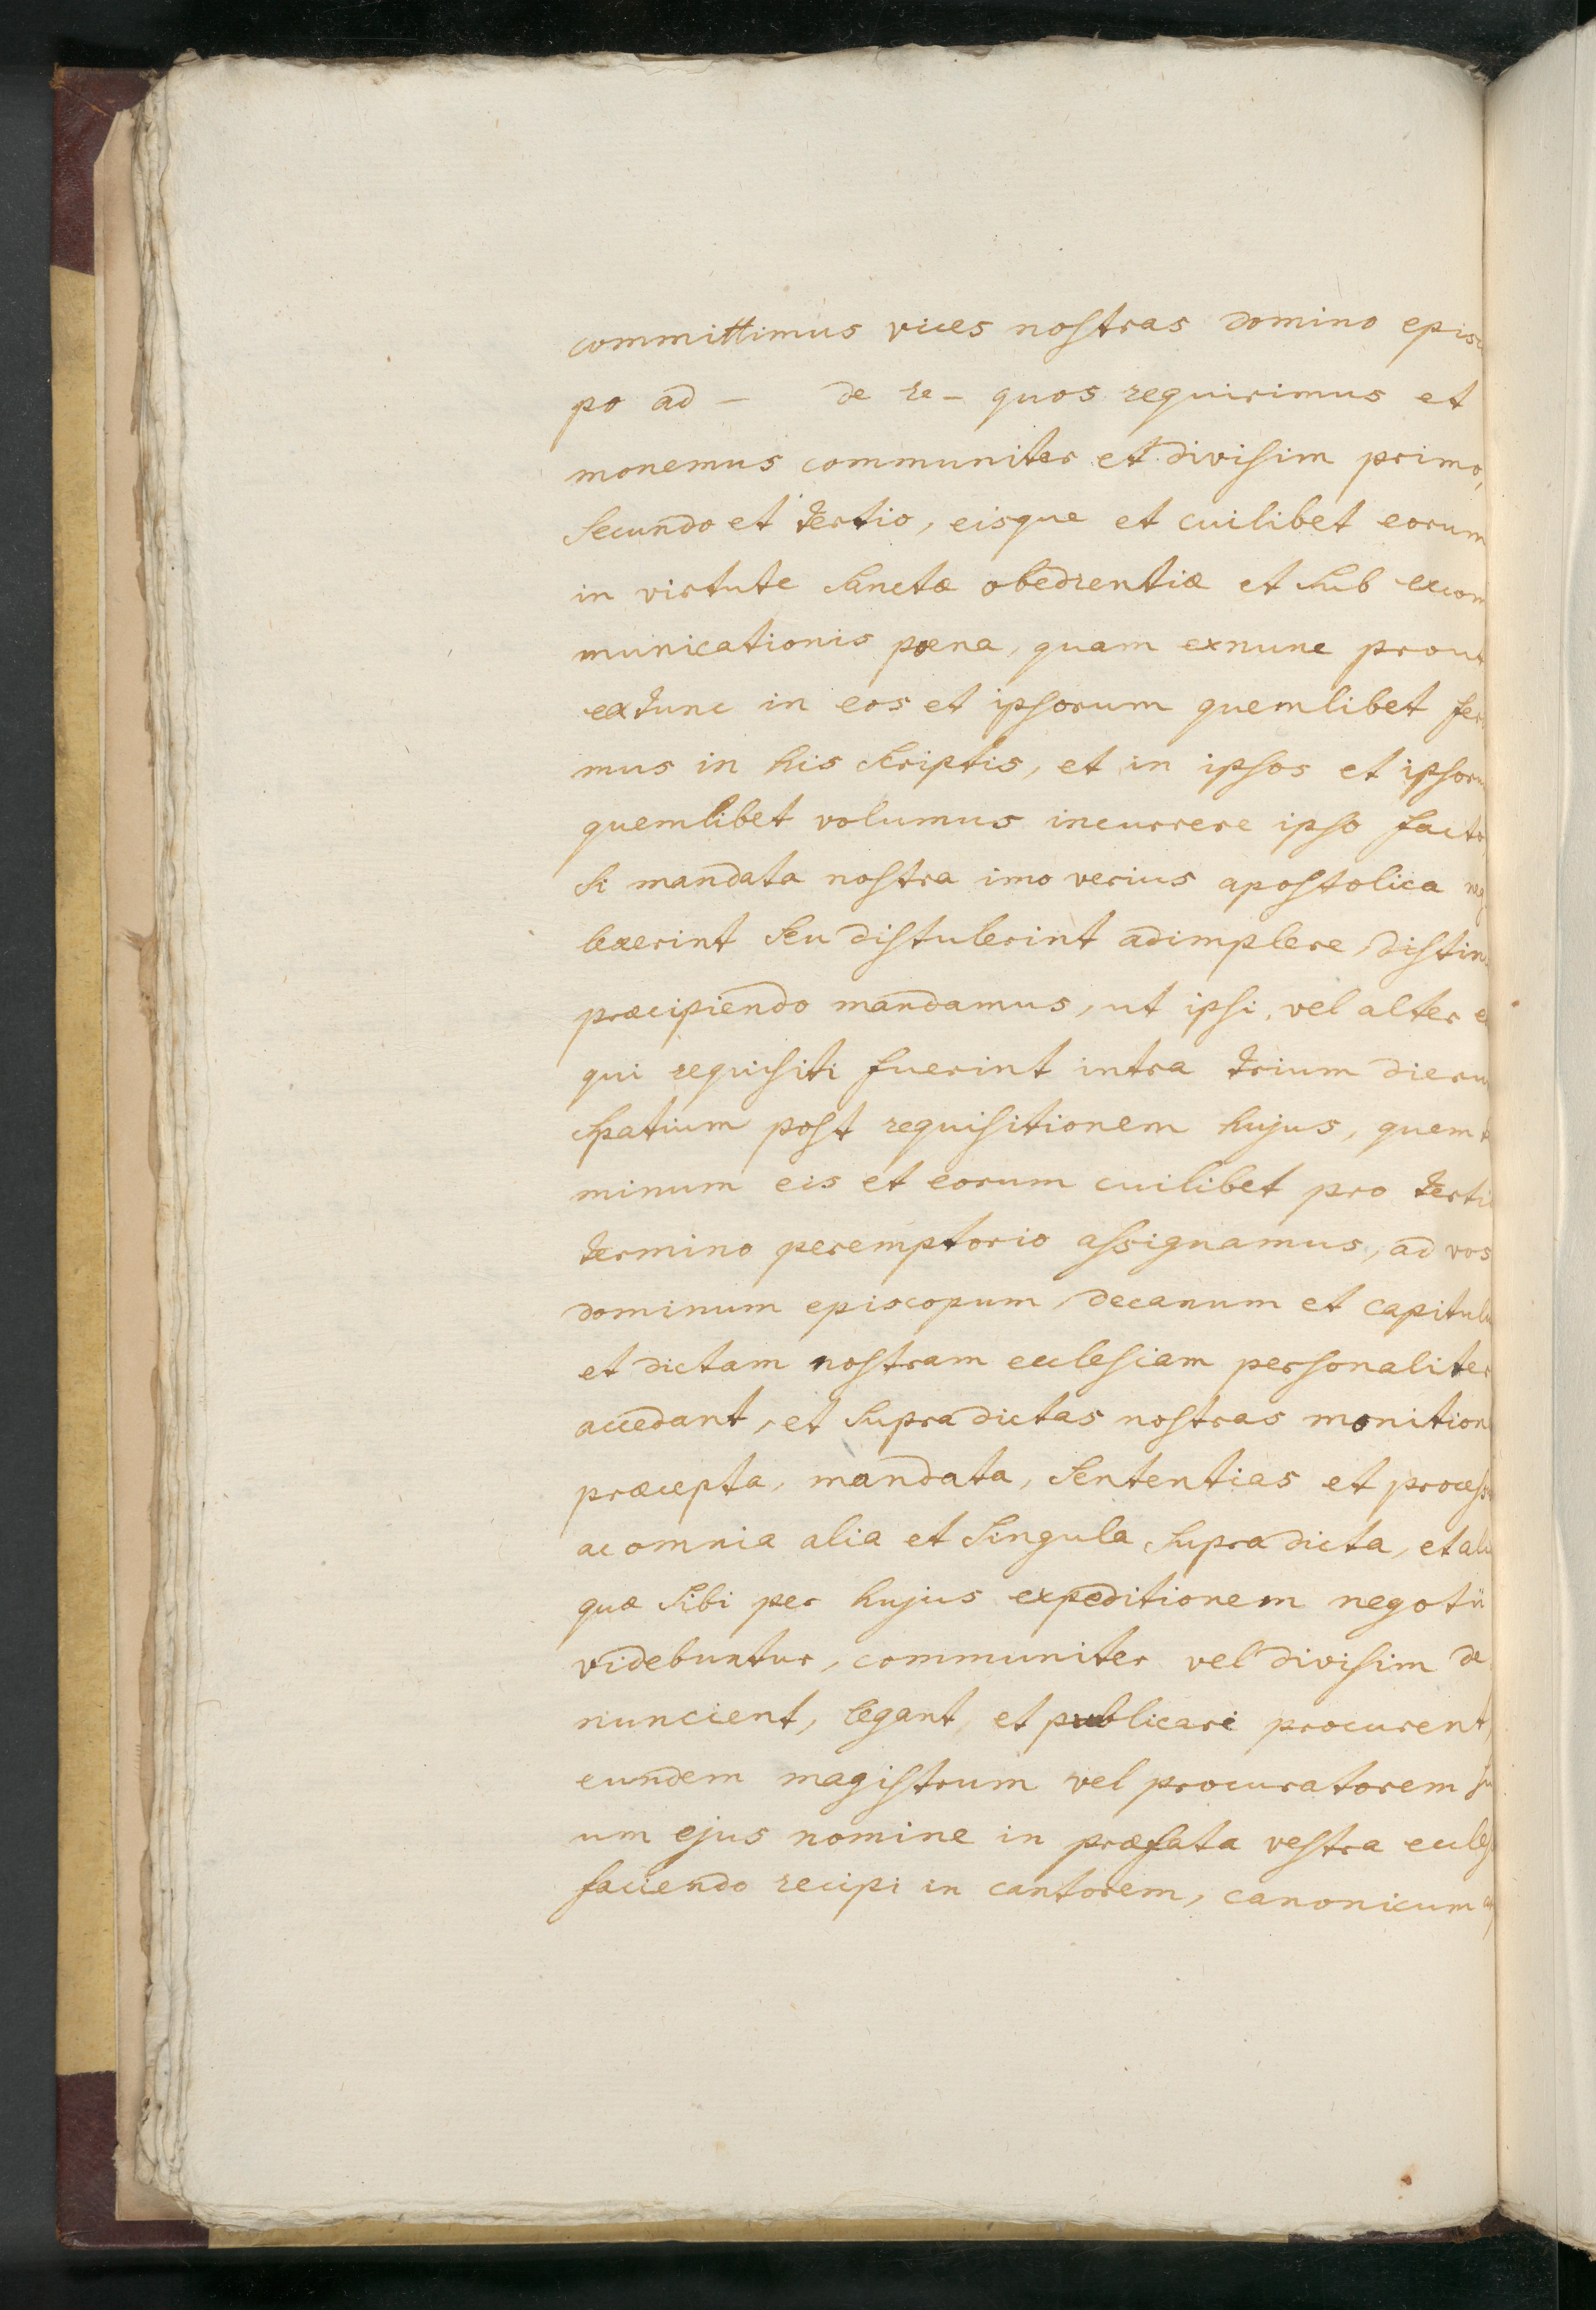 committimus vices nostras domino episc
po ad – de re – quos requirimus et
monemus communiter et divisim primo,
secundo et tertio, eisque et cuilibet eorum
in virtute sanctæ obedientiæ et sub excom
municationis pœna, quam exnunc prout
extunc in eos et ipsorum quemlibet fer
mus in his scriptis, et in ipsos et ipsoru
quemlibet volumus incurrere ipso facto,
si mandata nostra imo verius apostolica neg
lexerint seu distulerint adimplere, distin
præcipiendo mandamus, ut ipsi, vel alter e
qui requisiti fuerint intra trium dieru
spatium post requisitionem hujus, quem t
minum eis et eorum cuilibet pro terti
termino peremptorio assignamus, ad vos
dominum episcopum, decanum et capitulu
et dictam nostram ecclesiam personaliter
accedant, et supra dictas nostras monition
præcepta, mandata, sententias et process
ac omnia alia et singula supra dicta, et ali
quæ sibi per hujus expeditionem negotii
videbuntur, communiter vel divisim de
nuncient, legant, et publicari procurent,
eundem magistrum vel procuratorem su
um ejus nomine in præfata vestra eccles
faciendo recipi in cantorem, canonicum